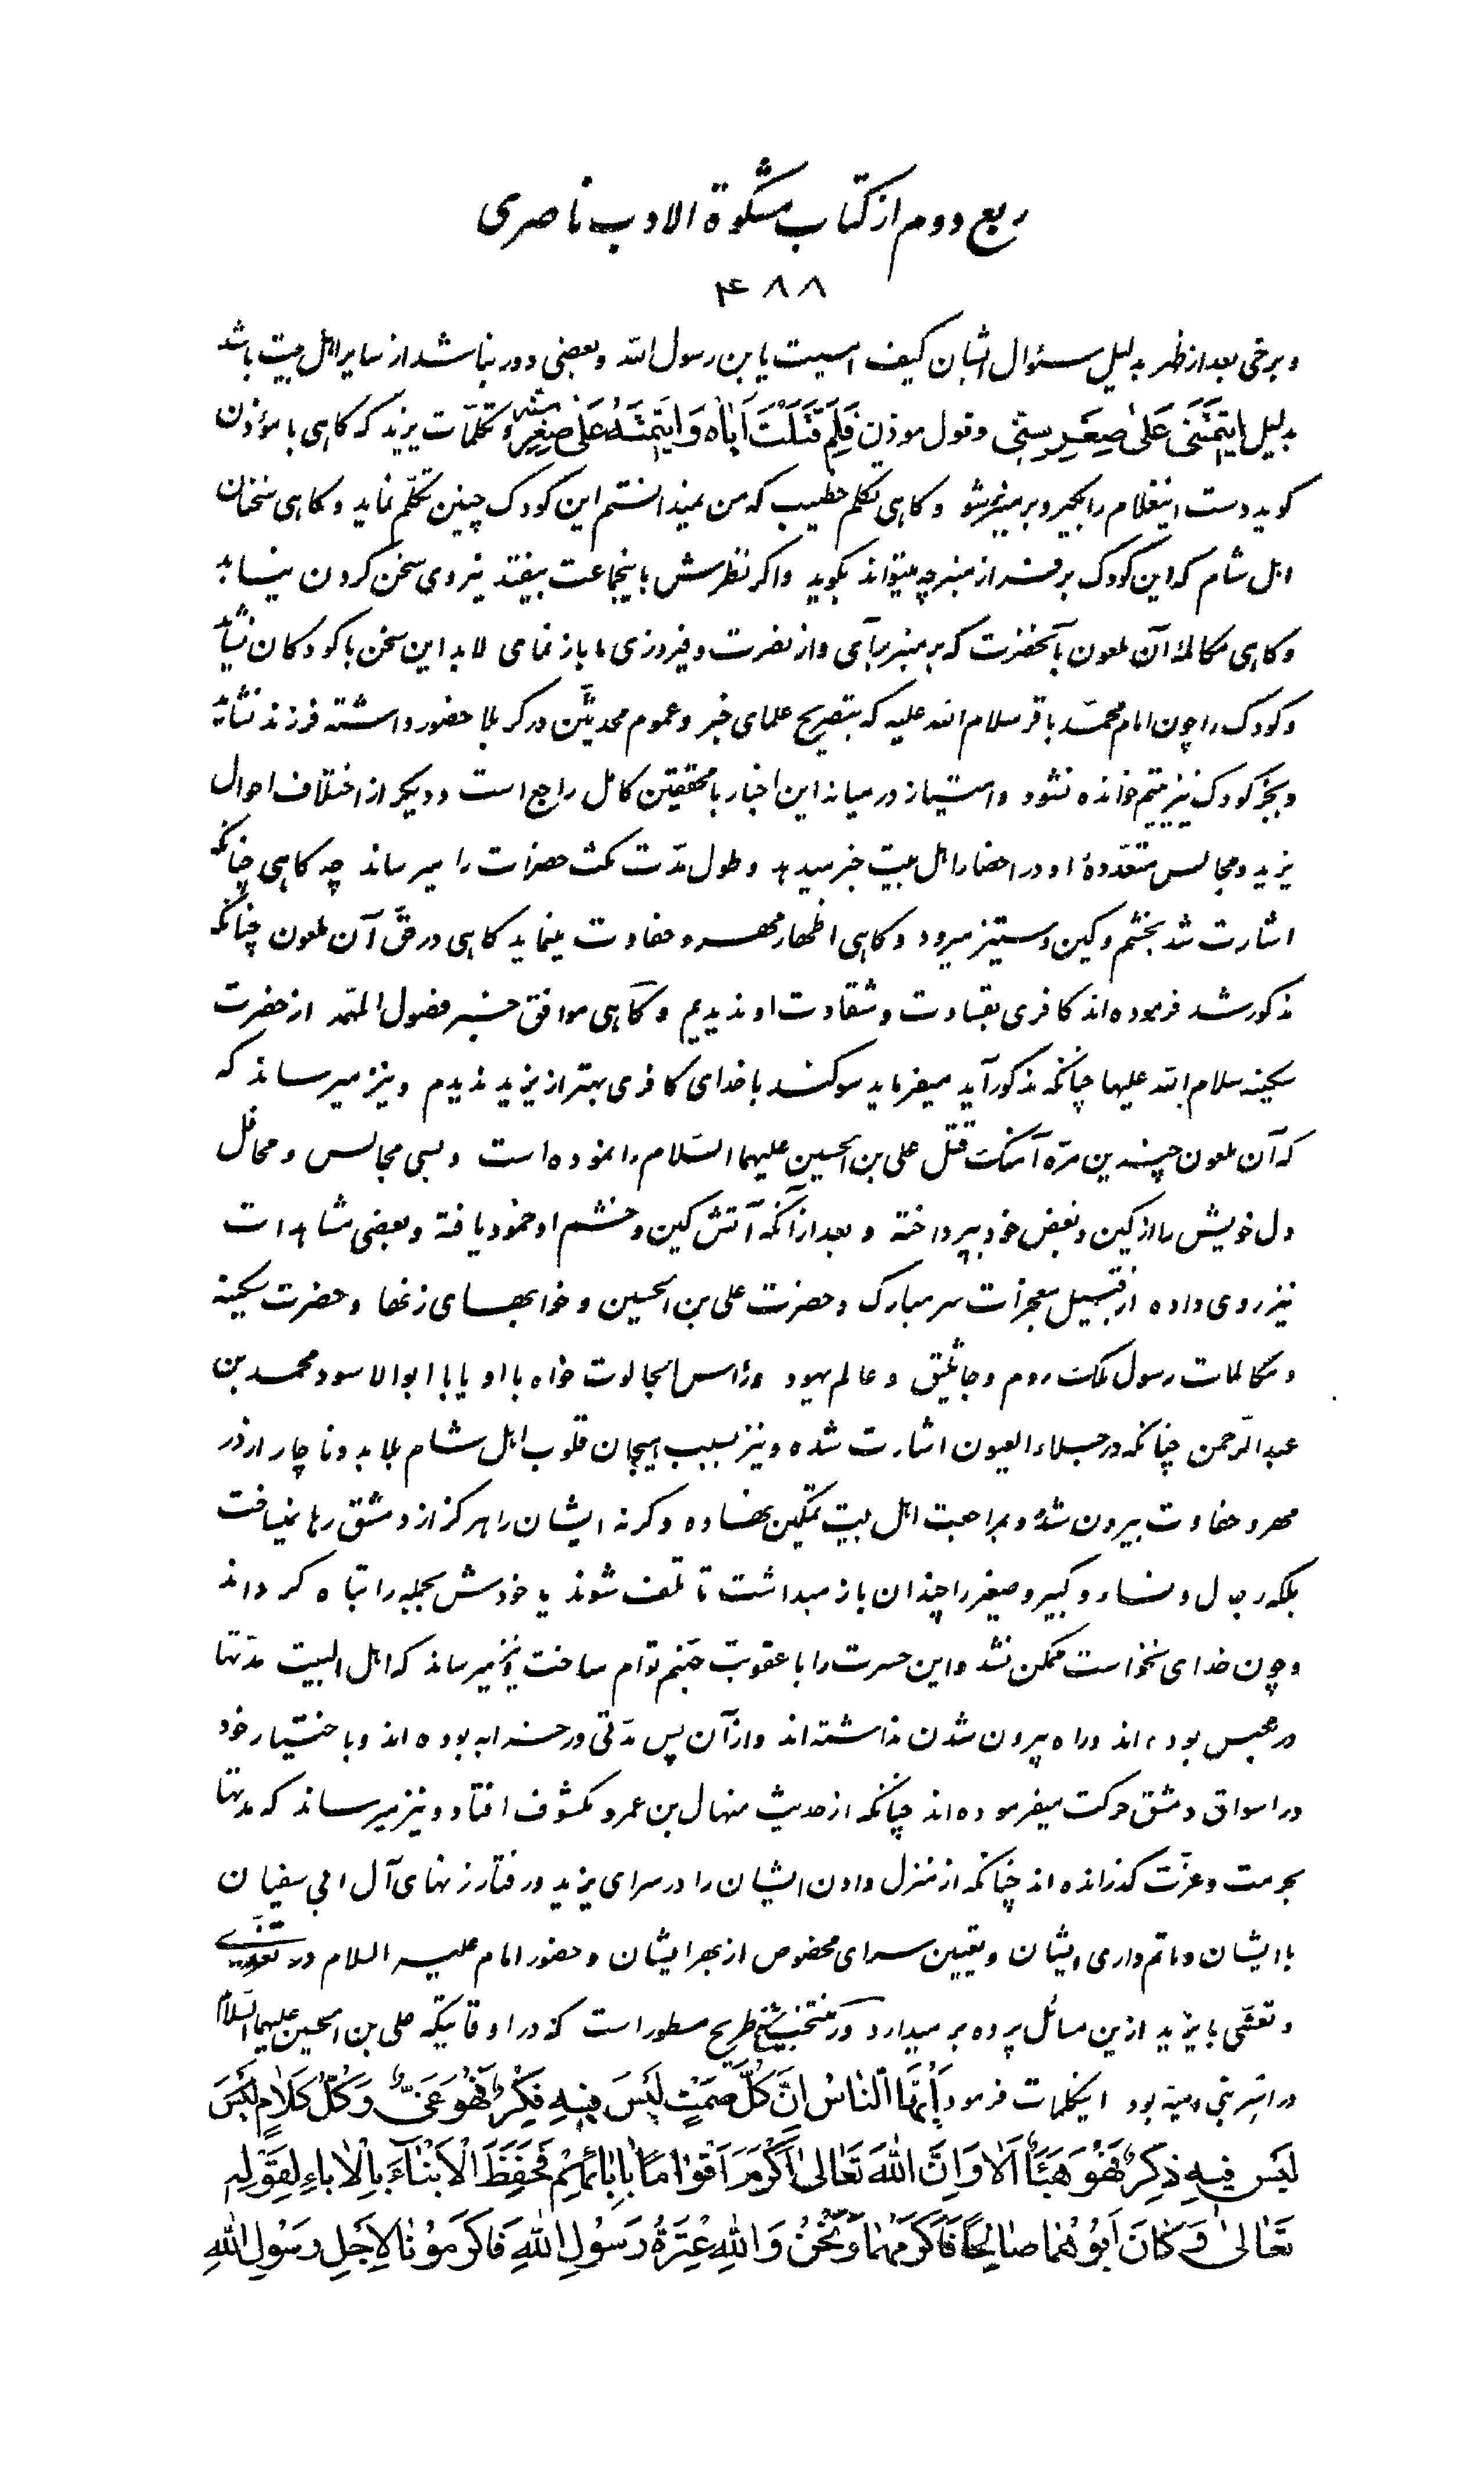 ربع دوم از کتاب مشکوة الادب ناصری
۴۸۸
و برخی بعد از ظهر بدلیل سؤال ایشان کیف امسیت یا بن رسول الله و بعضی دور بناشد از سایر اهل بیت باشد
بدلیل ایتمتنی علی صغر سنی و قول موذن فلم قتلت اباه و ایتمته علی صغر سنه و تکلمات یزید که گاهی با موذن
گوید دست اینغلام را بگیر و بر منبر شو و گاهی تکلم خطیب که من نمیدانستم این کودک چنین تکلم نماید و گاهی سخنان
اهل شام که این کودک بر فراز منبر چه میتواند بگوید و اگر نظرش باینجماعت بیفتد نیروی سخن کردن نیابد
و گاهی مکالمهٔ آن ملعون با آنحضرت که بر منبر برآی و از نصرت و فیروزی ما باز نمای لابد این سخن با کودکان نباشد
و کودک را چون امام محمد باقر سلام الله علیه که بتصریح علمای خبر و عموم محدثین در کربلا حضور داشته فرزند نشاید
و بجز کودک نیز یتیم خوانده نشود و امتیاز در میانه این اخبار با محققین کامل راجع است و دیگر از اختلاف احوال
یزید و مجالس متعددهٔ او در احضار اهل بیت خبر میدهد و طول مدت مکث حضرات را میرساند چه گاهی چنانکه
اشارت شد بخشم و کین و ستیز میرود و گاهی اظهار مهر و حفاوت مینماید گاهی در حق آن ملعون چنانکه
مذکور شد فرموده‌اند کافری بقساوت و شقاوت او ندیدیم و گاهی موافق خبر فصول المهمه از حضرت
سکینه سلام الله علیها چنانکه مذکور آید میفرماید سوگند با خدای کافری بهتر از یزید ندیدم و نیز میرساند که
که آن ملعون چندین مره آهنگ قتل علی بن الحسین علیهما السلام را نموده است و بسی مجالس و محافل
دل خویش را از کین و بغض خود بپرداخته و بعد از آنکه آتش کین و خشم او خمود یافته و بعضی مشاهدات
نیز روی داده از قبیل معجزات سر مبارک و حضرت علی بن الحسین و خوابهای زنها و حضرت سکینه
و مکالمات رسول ملک روم و جاثلیق و عالم یهود و رأس الجالوت خواه با او یا با ابوالاسود محمد بن
عبد الرحمن چنانکه در جلاء العیون اشارت شده و نیز بسبب هیجان قلوب اهل شام لابد و ناچار از در
مهر و حفاوت بیرون شده و بمراجعت اهل بیت تمکین نهاده و گرنه ایشان را هرگز از دمشق رها نمیساخت
بلکه رجال و نساء و کبیر و صغیر را چندان باز میداشت تا تلف شوند یا خودش بجمله را تباه گرداند
و چون خدای نخواست ممکن نشد و این حسرت را با عقوبت جهنم توام ساخت و نیز میرساند که اهل البیت مدتها
در محبس بوده‌اند و راه بیرون شدن نداشته‌اند و از آن پس مدتی در خرابه بوده‌اند و باختیار خود
در اسواق دمشق حرکت میفرموده‌اند چنانکه از حدیث منهال بن عمرو مکشوف افتاد و نیز میرساند که مدتها
بحرمت و عزت گذرانده‌اند چنانکه از منزل دادن ایشان را در سرای یزید و رفتار زنهای آل ابی سفیان
با ایشان و ماتم داری ایشان و تعیین سرای مخصوص از بهر ایشان و حضور امام علیه السلام در تغذی
و تعشی با یزید ازین مسائل پرده بر میدارد و در منتخب شیخ طریح مسطور است که در اوقاتیکه علی بن الحسین علیهما السلام
در اسر بنی امیه بود اینکلمات فرمود اَیُّهَا النّاسُ اِنَّ کُلَّ صَمتٍ لَیسَ فیهِ فِکرٌ فَهُوَ عَیٌّ وَ کُلُّ کَلامٍ لَیسَ
لَیسَ فیهِ ذِکرٌ فَهُوَ هَباءٌ اَلا وَ اِنَّ اللهَ تَعالی اَکرَمَ اَقواماً بِابائِهِم فَحَفِظَ الاَبناءَ بِالاباءِ لِقَولِهِ
تَعالی وَ کانَ اَبُوهُما صالِحاً فَاَکرَمَهُما وَ نَحنُ وَاللهِ عِترَةُ رَسُولِ اللهِ فَاکرِمُونا لِاَجلِ رَسُولِ اللهِ